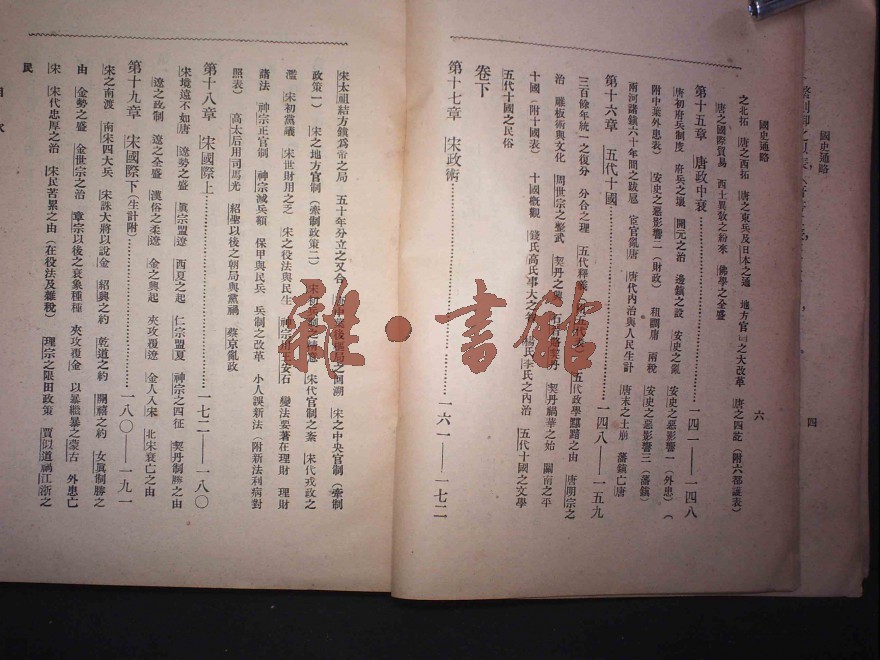 國史通略
四
國史通略
六
之北拓 唐之西拓 唐之東兵及日本之通 地方官 之大改革 唐之四訖(附六都護表)
唐之國際貿易 西土異敎之紛來 佛學之全盛
第十五章 唐政中衰……一四一——一四八
唐初府兵制度 府兵之壞 開元之治 邊鎮之設 安史之亂 安史之惡影響一(外患)(
附中葉外患表) 安史之惡影響二(財政) 租調庸 兩稅 安史之惡影響三(藩鎮)
兩河諸鎮六十年間之跋扈 宦官亂唐 唐代內治與人民生計 唐末之土崩 藩鎮亡唐
第十六章 五代十國……一四八——一五九
三百餘年統一之復分 分合之理 五代釋義 五代政學黯黯之由 唐明宗之
治 雕板術與文化 周世宗之整武 契丹之興 契丹 契丹禍華之始 關南之平
十國(附十國表) 十國概觀 錢氏高氏事大之 李氏之內治 五代十國之文學
五代十國之民俗
卷下
第十七章 宋政術……一六一——一七二
宋太祖結方鎮爲帝之局 五十年分立之又合 中葉後 局之回溯 宋之中央官制(牽制
政策一) 宋之地方官制(牽制政策二) 宋初兵制 宋代官制之紊 宋代戎政之
濫 宋初黨議 宋世財用之乏 宋之役法與民生 神宗用王安石 變法要著在理財 理財
諸法 神宗正官制 神宗減兵額 保甲與民兵 兵制之改革 小人誤新法(附新法利病對
照表) 高太后用司馬光 紹聖以後之朝局與黨禍 蔡京亂政
第十八章 宋國際上……一七二——一八〇
宋境遠不如唐 遼勢之盛 眞宗盟遼 西夏之起 仁宗盟夏 神宗之四征 契丹制勝之由
遼之政制 遼之全盛 漢俗之柔遼 金之興起 夾攻覆遼 金人入宋 北宋衰亡之由
第十九章 宋國際下(生計附)……一八〇——一九一
宋之南渡 南宋四大兵 宋誅大將以說金 紹興之約 乾道之約 開禧之約 女眞制勝之
由 金勢之盛 金世宗之治 章宗以後之衰象種種 夾攻覆金 以暴繼暴之蒙古 外患亡
宋 宋代忠厚之治 宋民苦累之由(在役法及雜稅) 理宗之限田政策 賈似道禍江浙之
民
目次
雜·書館